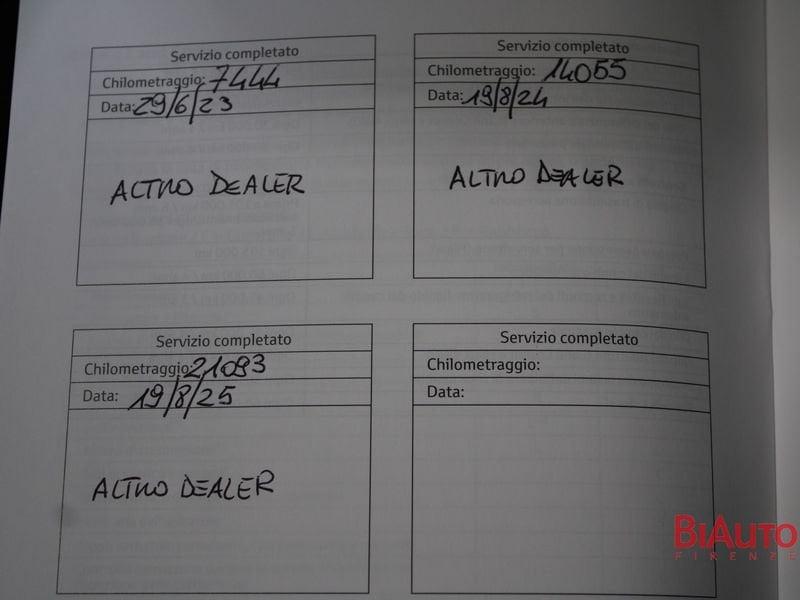 Servizio completato
Chilometraggio: 7444
Data: 29/6/23
ALTRO DEALER
Servizio completato
Chilometraggio: 14055
Data: 19/8/24
ALTRO DEALER
Servizio completato
Chilometraggio: 21093
Data: 19/8/25
ALTRO DEALER
Servizio completato
Chilometraggio:
Data:
BIAUTO
FIRENZE